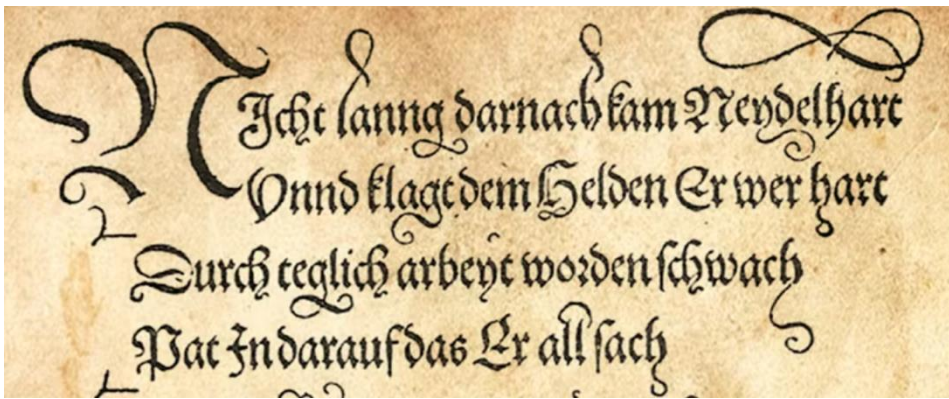 NIcht lanng darnach kam Neydelhart
Vnnd klagt dem Helden Er wer hart
Durch teglich arbeyt worden schwach
Pat In darauf das Er all sach